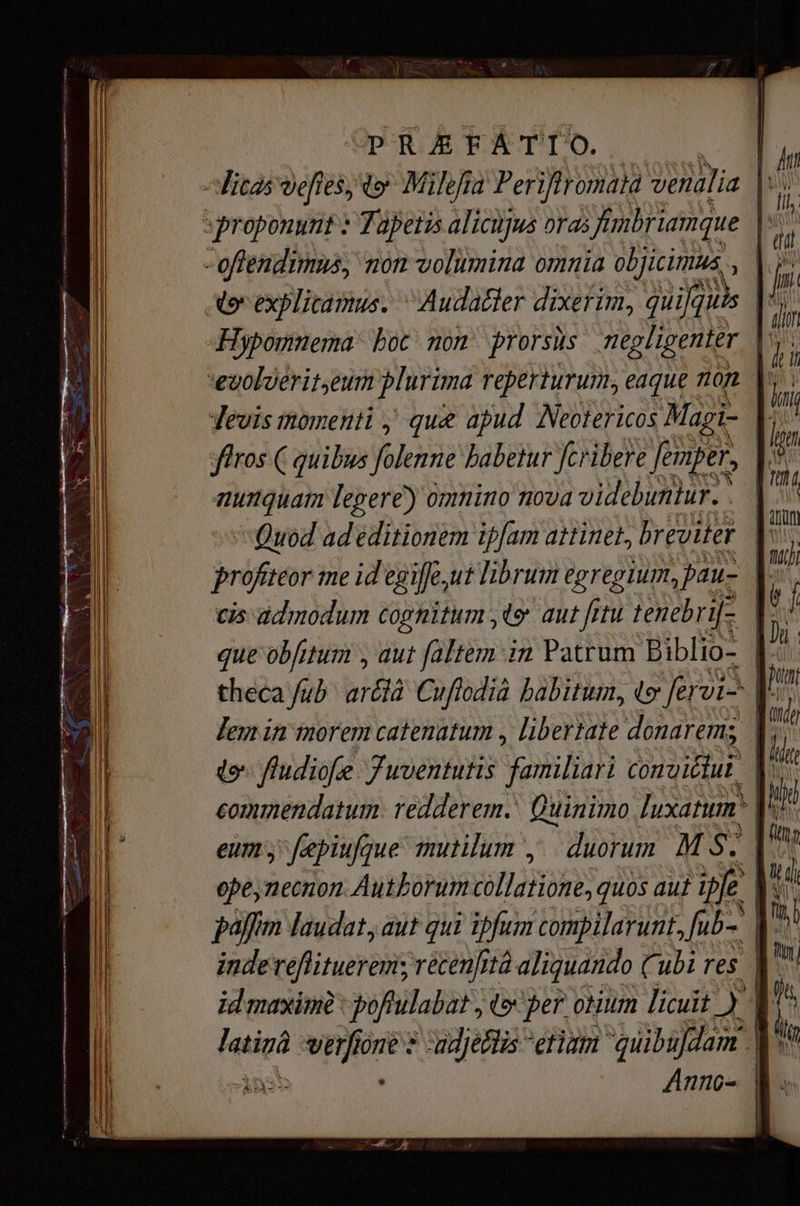 PRÆFATIO.
licas vestes, & Milesia Peristromata venalia
proponunt: Tapetis alicujus oras fimbriamque
ostendimus, non volumina omnia objicimus,
& explicamus. Audacter dixerim, quisquis
Hypomnema hoc non prorsùs negligenter
evolverit, eum plurima reperturum, eaque non
levis momenti, quæ apud Neotericos Magi-
stros (quibus solenne habetur scribere semper,
nunquam legere) omnino nova videbuntur.
Quod ad editionem ipsam attinet, breviter
profiteor me id egisse, ut librum egregium, pau-
cis admodum cognitum, & aut situ tenebris-
que obsitum, aut saltem in Patrum Biblio-
theca sub arctâ Custodiâ habitum, & servi-
lem in morem catenatum, libertate donarem;
& studiosæ Juventutis familiari convictui
commendatum redderem. Quinimo luxatum
eum, sæpiusque mutilum, duorum MS.
ope, necnon Authorum collatione, quos aut ipse
passim laudat, aut qui ipsum compilarunt, sub-
inde restituerem; recensitâ aliquando (ubi res
id maximè postulabat, & per otium licuit)
latinâ versione: adjectis etiam quibusdam
Anno-